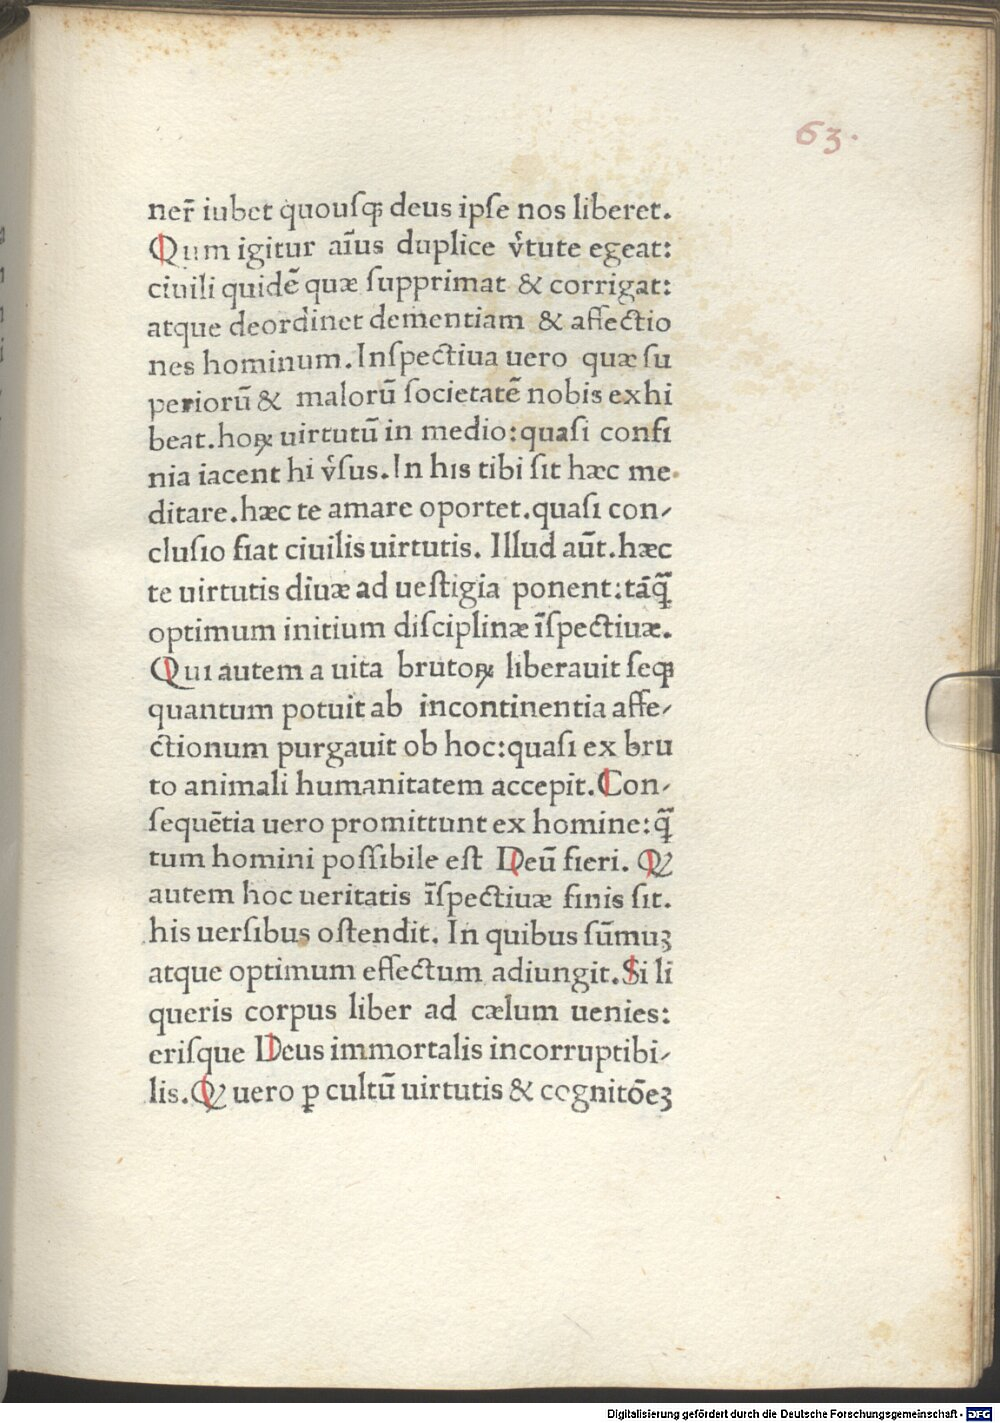 63.
ner̃ iubet quouſqꝫ deus ipſe nos liberet.
Qum igitur aĩus duplice v̉tute egeat:
ciuili quidẽ quæ ſupprimat & corrigat:
atque deordinet dementiam & affectio
nes hominum. Inſpectiua uero quæ ſu
periorũ & malorũ ſocietatẽ nobis exhi
beat. hoꝝ uirtutũ in medio: quaſi confi
nia iacent hi v̉ſus. In his tibi ſit hæc me
ditare. hæc te amare oportet. quaſi con-
cluſio fiat ciuilis uirtutis. Illud aũt. hæc
te uirtutis diũæ ad ueſtigia ponent: tãq̃ꝫ
optimum initium diſciplinæ ĩſpectiuæ.
Qui autem a uita brutoꝝ liberauit ſeqꝫ
quantum potuit ab incontinentia affe-
ctionum purgauit ob hoc: quaſi ex bru
to animali humanitatem accepit. Con-
ſequẽtia uero promittunt ex homine: q̃
tum homini poſſibile eſt Deũ fieri. Ꝙ
autem hoc ueritatis ĩſpectiuæ finis ſit.
his uerſibus oſtendit. In quibus ſũmuꝫ
atque optimum effectum adiungit. Si li
queris corpus liber ad cælum uenies:
eriſque Deus immortalis incorruptibi-
lis. Ꝙ uero ꝑ cultũ uirtutis & cognitõeꝫ
Digitalisierung gefördert durch die Deutsche Forschungsgemeinschaft - DFG